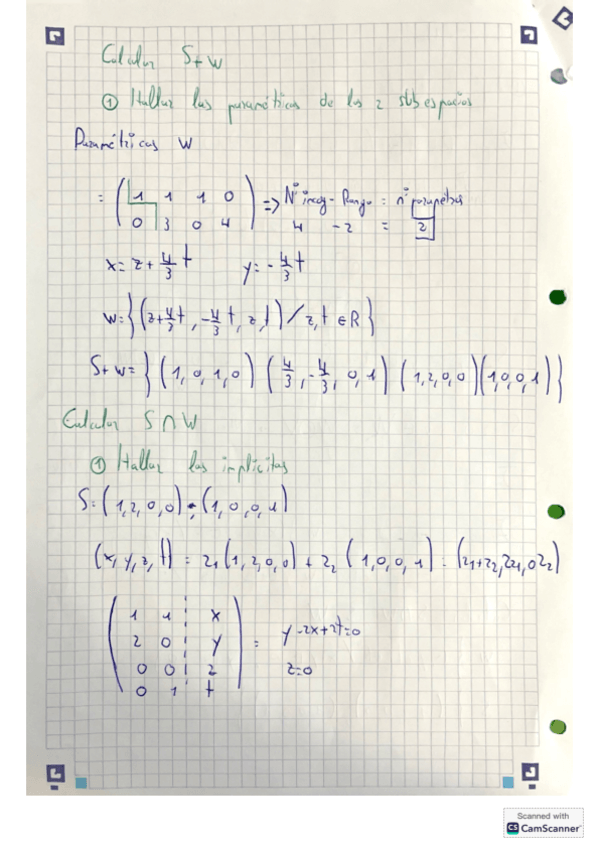 Calcular S+W
① Hallar las paramétricas de los 2 subespacios
Paramétricas W
= ( 1 1 1 0 => Nº incog - Rango = nº parametros
0 3 0 4 ) 4 - 2 = 2
x = z + 4/3 t y = - 4/3 t
W = { (z + 4/3 t, - 4/3 t, z, t) / z, t ∈ R }
S+W = } (1,0,1,0) (4/3, -4/3, 0, 1) (1,2,0,0) (1,0,0,1) }
Calcular S ∩ W
① Hallar las implícitas
S = (1,2,0,0) , (1,0,0,1)
(x, y, z, t) = 21 (1,2,0,0) + 22 (1,0,0,1) = (21+22, 221, 0 22)
( 1 1 x
2 0 y = y - 2x + 2t = 0
0 0 z z = 0
0 1 t )
Scanned with
CS CamScanner